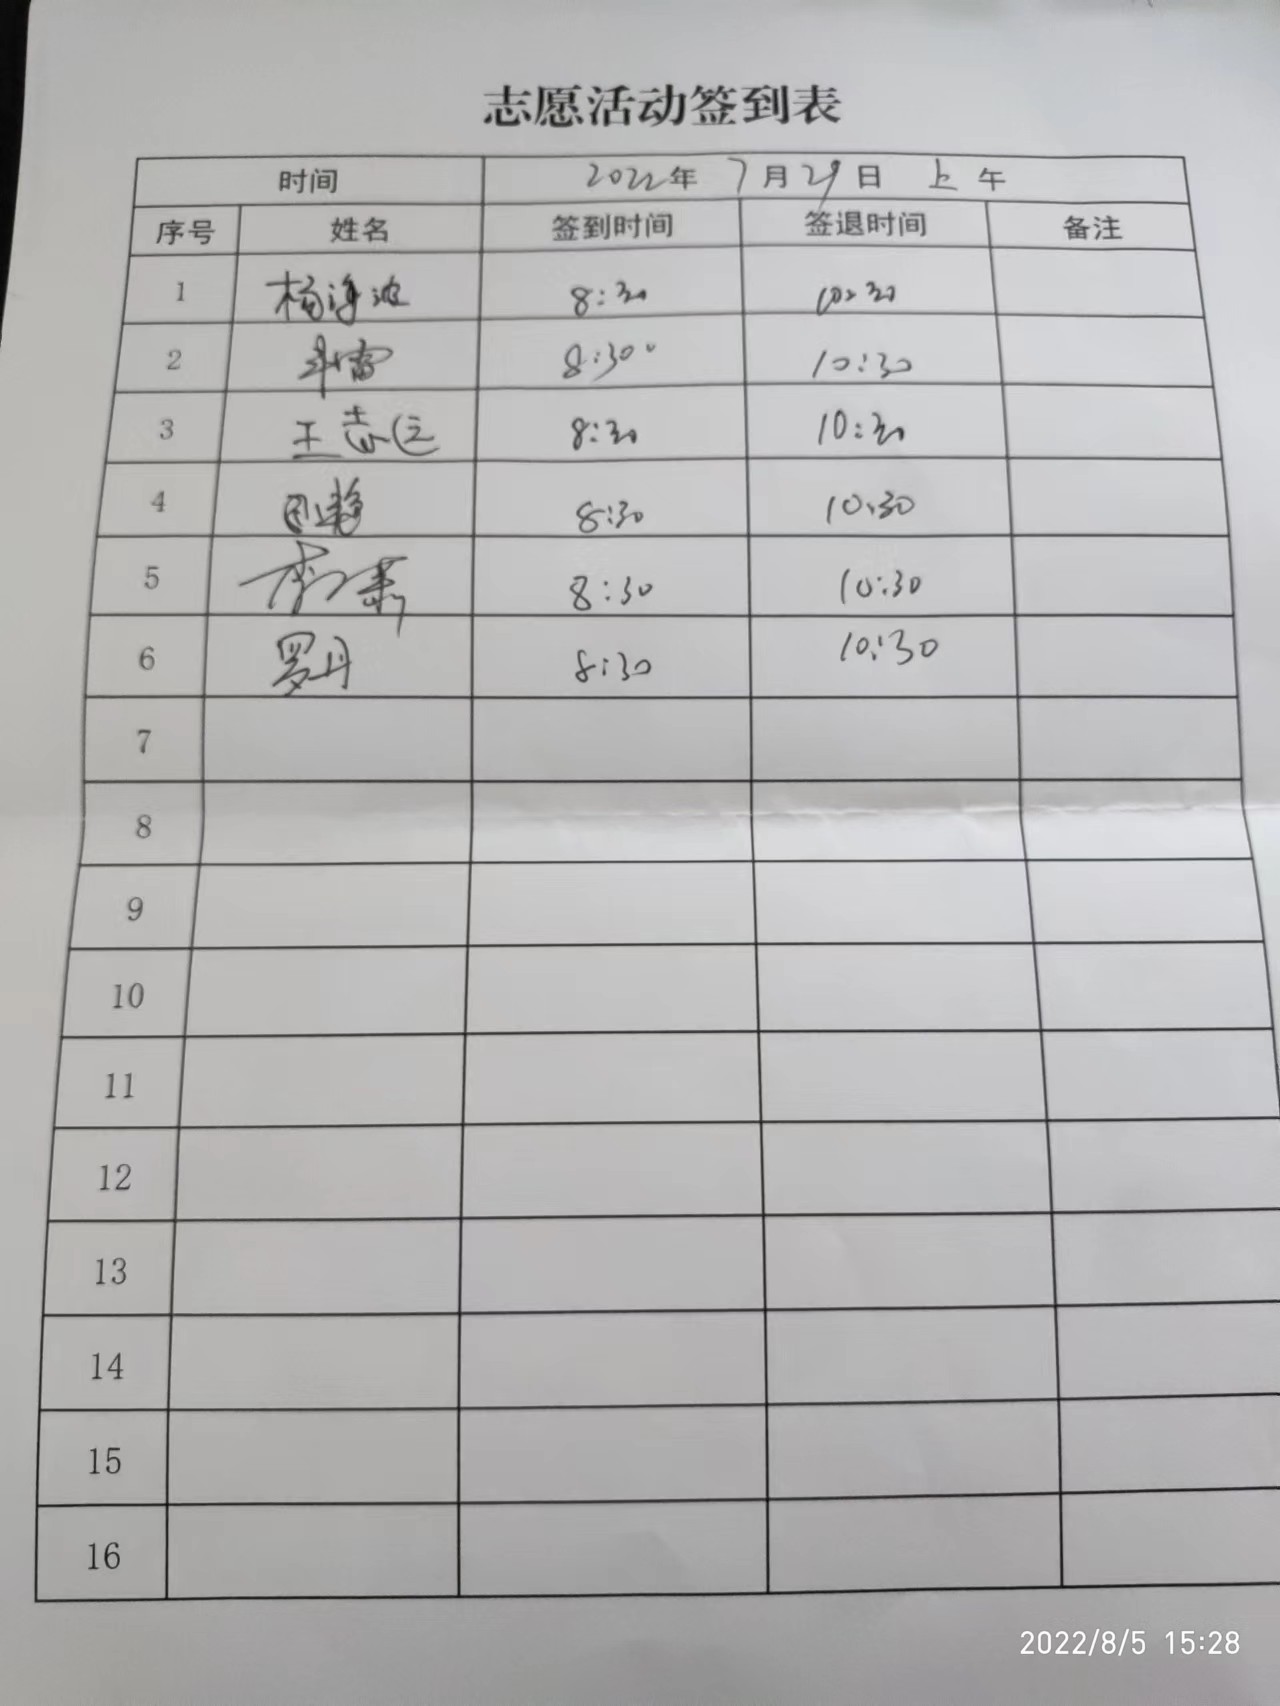 志愿活动签到表
时间 2022年 7月29日 上午
序号 姓名 签到时间 签退时间 备注
1 杨海波 8:30 10:30
2 8:30 10:30
3 王志远 8:30 10:30
4 8:30 10:30
5 8:30 10:30
6 罗丹 8:30 10:30
7
8
9
10
11
12
13
14
15
16
2022/8/5 15:28